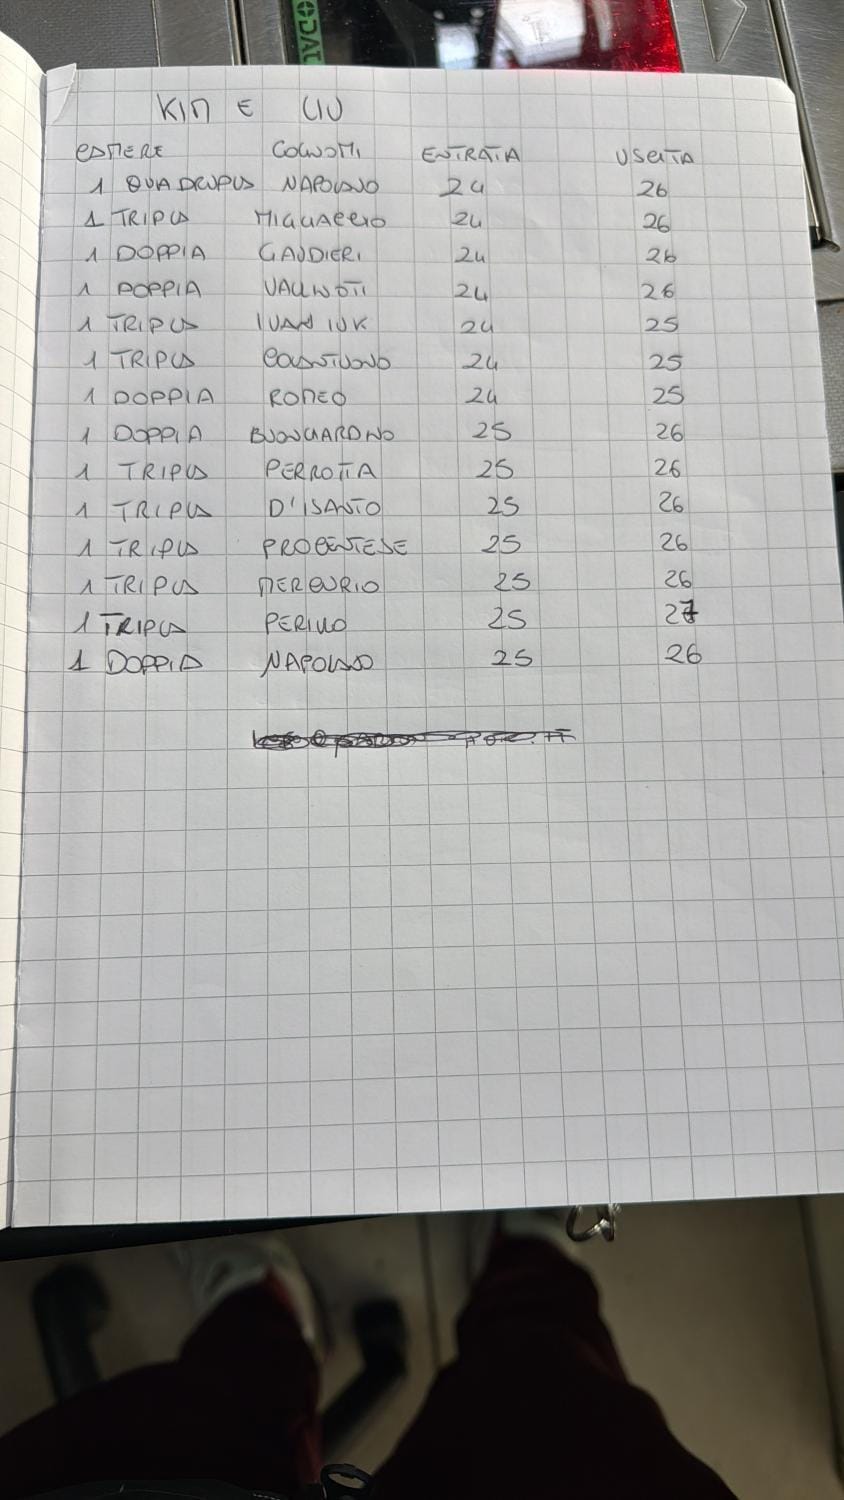 KIM E LIU
CAMERE COGNOMI ENTRATA USCITA
1 QUADRUPLA NAPOLANO 24 26
1 TRIPLA MIGLIACCIO 24 26
1 DOPPIA GAUDIERI 24 26
1 DOPPIA 24 26
1 TRIPLA IVANIUK 24 25
1 TRIPLA 24 25
1 DOPPIA ROMEO 24 25
1 DOPPIA BUONGIARDINO 25 26
1 TRIPLA PERROTTA 25 26
1 TRIPLA D'ISANTO 25 26
1 TRIPLA 25 26
1 TRIPLA MERCURIO 25 26
1 TRIPLA PERILLO 25 27
1 DOPPIA NAPOLANO 25 26